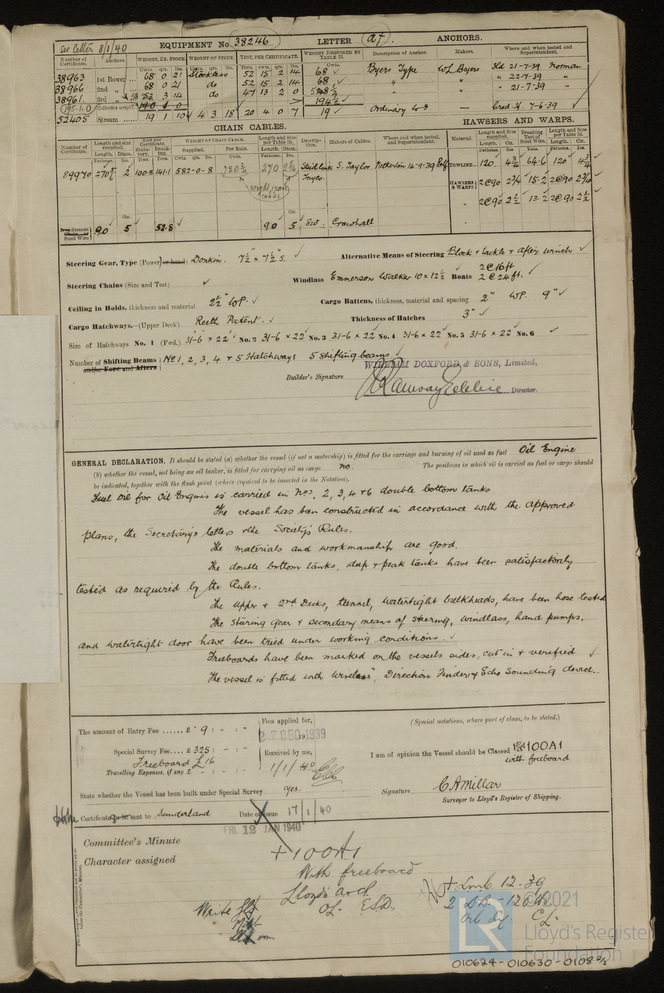 See letter 8/1/40
EQUIPMENT No. 38246 LETTER at. ANCHORS.
Number of Certificate. Anchors. WEIGHT, EX. STOCK WEIGHT OF STOCK. TEST, PER CERTIFICATE. WEIGHT REQUIRED BY TABLE 31. Description of Anchor. Makers. Where and when tested and Superintendent.
38963 1st Bower 68 0 21 Stockless 52 15 2 14 68 Byers Type W L Byers Sld 21-7-39 Norman
38966 2nd " 68 0 21 do 52 15 2 14 68 " 22-7-39 "
38961 3rd " 53 3 14 do 47 13 2 0 " 21-7-39 "
52405 Stream 19 1 10 4 3 18 20 4 0 7 19 Ordinary 7-6-39
CHAIN CABLES. HAWSERS AND WARPS.
Number of Certificate. Length and size supplied. Test per Certificate. WEIGHT OF CHAIN CABLE. Length and size per Table 31. Description. Makers of Cables. Where and when tested, and Superintendent. Material. Length and size supplied. Breaking Test of Steel Wire. Length and size per Table 31.
Supplied. Per Rule.
89970 270 100·8 141·1 582-0-8 270 S. Taylor Netherton 14-9-39 TOWLINE 120 4¾ 64·6 120 4¾
HAWSERS & WARPS 2@90 2¾ 15·2 2@90 2¾
2@90 2½ 13·2 2@90 2½
Steel Wire 90 5 52·8 90 5 Craushall
Steering Gear, Type (Power or hand) Donkin. 7½" x 7½"s. Alternative Means of Steering Block & tackle & after winch
Steering Chains (Size and Test) Windlass Emmerson Walker 10 x 12½ Boats 2 @ 16ft 2 @ 24ft.
Ceiling in Holds, thickness and material 2½" WP. Cargo Battens, thickness, material and spacing 2" WP. 9"
Cargo Hatchways.—(Upper Deck) Reeth Patent. Thickness of Hatches 3"
Size of Hatchways No. 1 (Fwd.) 31'-6 x 22' No. 2 31-6 x 22' No. 3 31-6 x 22' No. 4 31-6 x 22' No. 5 31-6 x 22' No. 6
Number of Shifting Beams and/or Fore and Afters No 1, 2, 3, 4 & 5 Hatchways 5 Shifting beams.
WILLIAM DOXFORD & SONS, Limited,
Builder's Signature Director.
GENERAL DECLARATION. It should be stated (a) whether the vessel (if not a motorship) is fitted for the carriage and burning of oil used as fuel Oil Engine
(b) whether the vessel, not being an oil tanker, is fitted for carrying oil as cargo no. The positions in which oil is carried as fuel or cargo should
be indicated, together with the flash point (where required to be inserted in the Notation).
Fuel Oil for Oil Engines is carried in Nos. 2, 3, 4 & 6 double bottom tanks
The vessel has been constructed in accordance with the approved
plans, the Secretary's letters & the Society's Rules.
The materials and workmanship are good.
The double bottom tanks, deep & peak tanks have been satisfactorily
tested as required by the Rules.
The upper & 2nd Decks, tunnel, watertight bulkheads, have been hose tested
The steering gear & secondary means of steering, windlass, hand pumps,
and watertight door have been tried under working conditions.
Freeboards have been marked on the vessels sides, cut in & verified
The vessel is fitted with wireless, Direction Finder & Echo Sounding device.
The amount of Entry Fee ...... £ 9 : - : - Fees applied for, 27 DEC 1939 (Special notations, where part of class, to be stated.)
Special Survey Fee .... £ 325 : - : - Received by me, I am of opinion the Vessel should be Classed 100A1
Freeboard £ 16 1/1/40 with freeboard
Travelling Expenses, if any £ - : - : -
State whether the Vessel has been built under Special Survey. Yes. Signature C A Millar
Surveyor to Lloyd's Register of Shipping.
Certificate to be sent to Sunderland Date of issue 17/1/40
FRI. 12 JAN 1940
Committee's Minute
Character assigned
+100A1
With freeboard
Lloyd's A & C.P.
OL. ESD.
+ Lmb 12.39
2 DB
CL
© 2021
LR
Lloyd's Register
Foundation
010624-010630-0108 ½